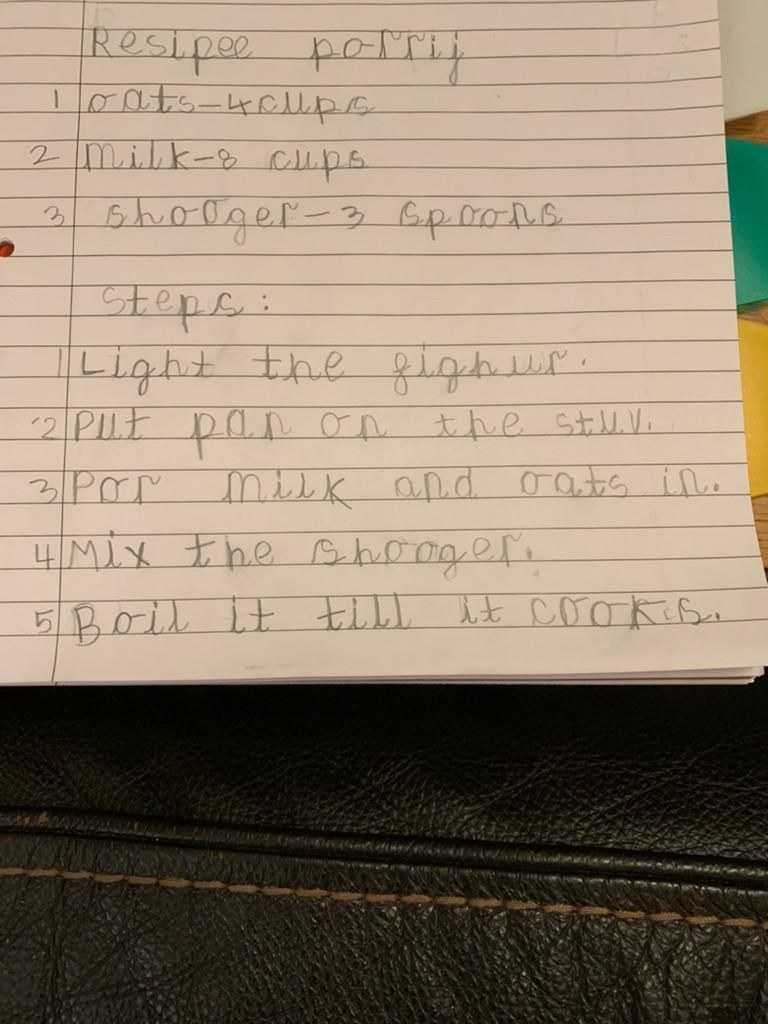 Resipee porrij
1 oats-4cups
2 Milk-8 cups
3 shooger-3 spoons
Steps:
1 Light the fighur.
2 Put pan on the stuv.
3 Por milk and oats in.
4 Mix the shooger.
5 Boil it till it cooks.